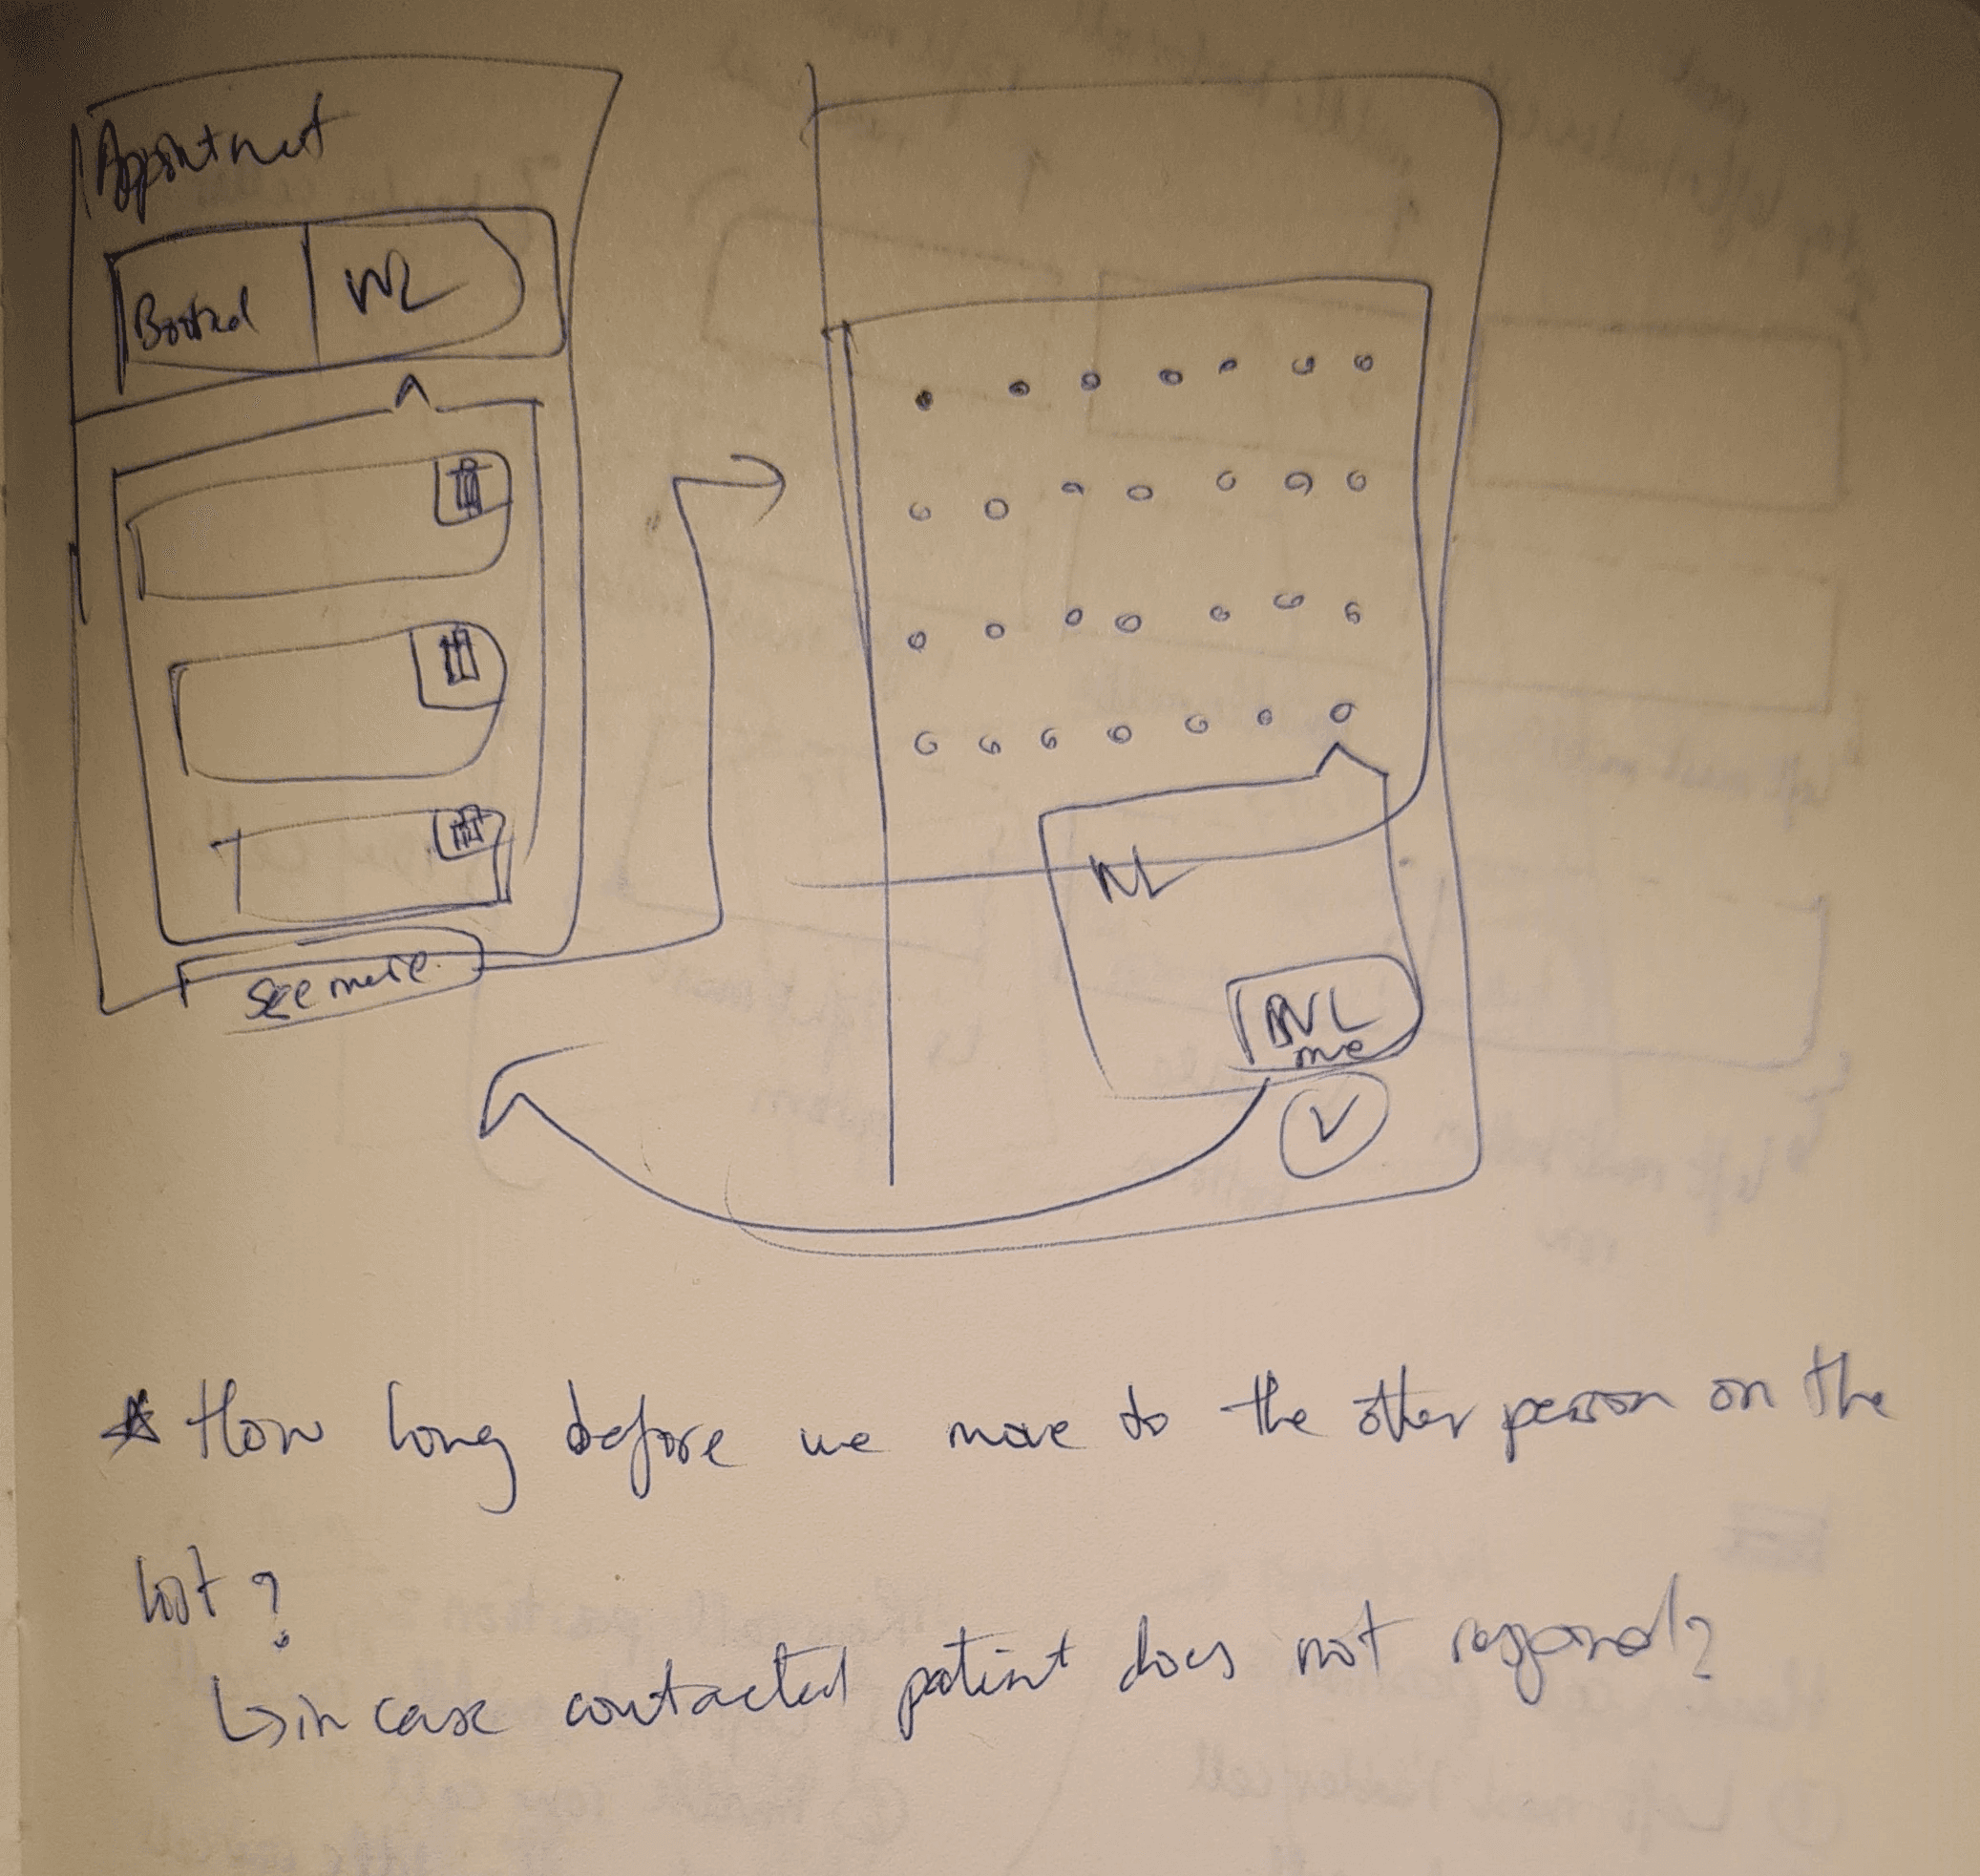 Appointment
Booked
WL
See more
WL
WL
me
* How long before we move to the other person on the
list?
↳ in case contacted patient does not respond?